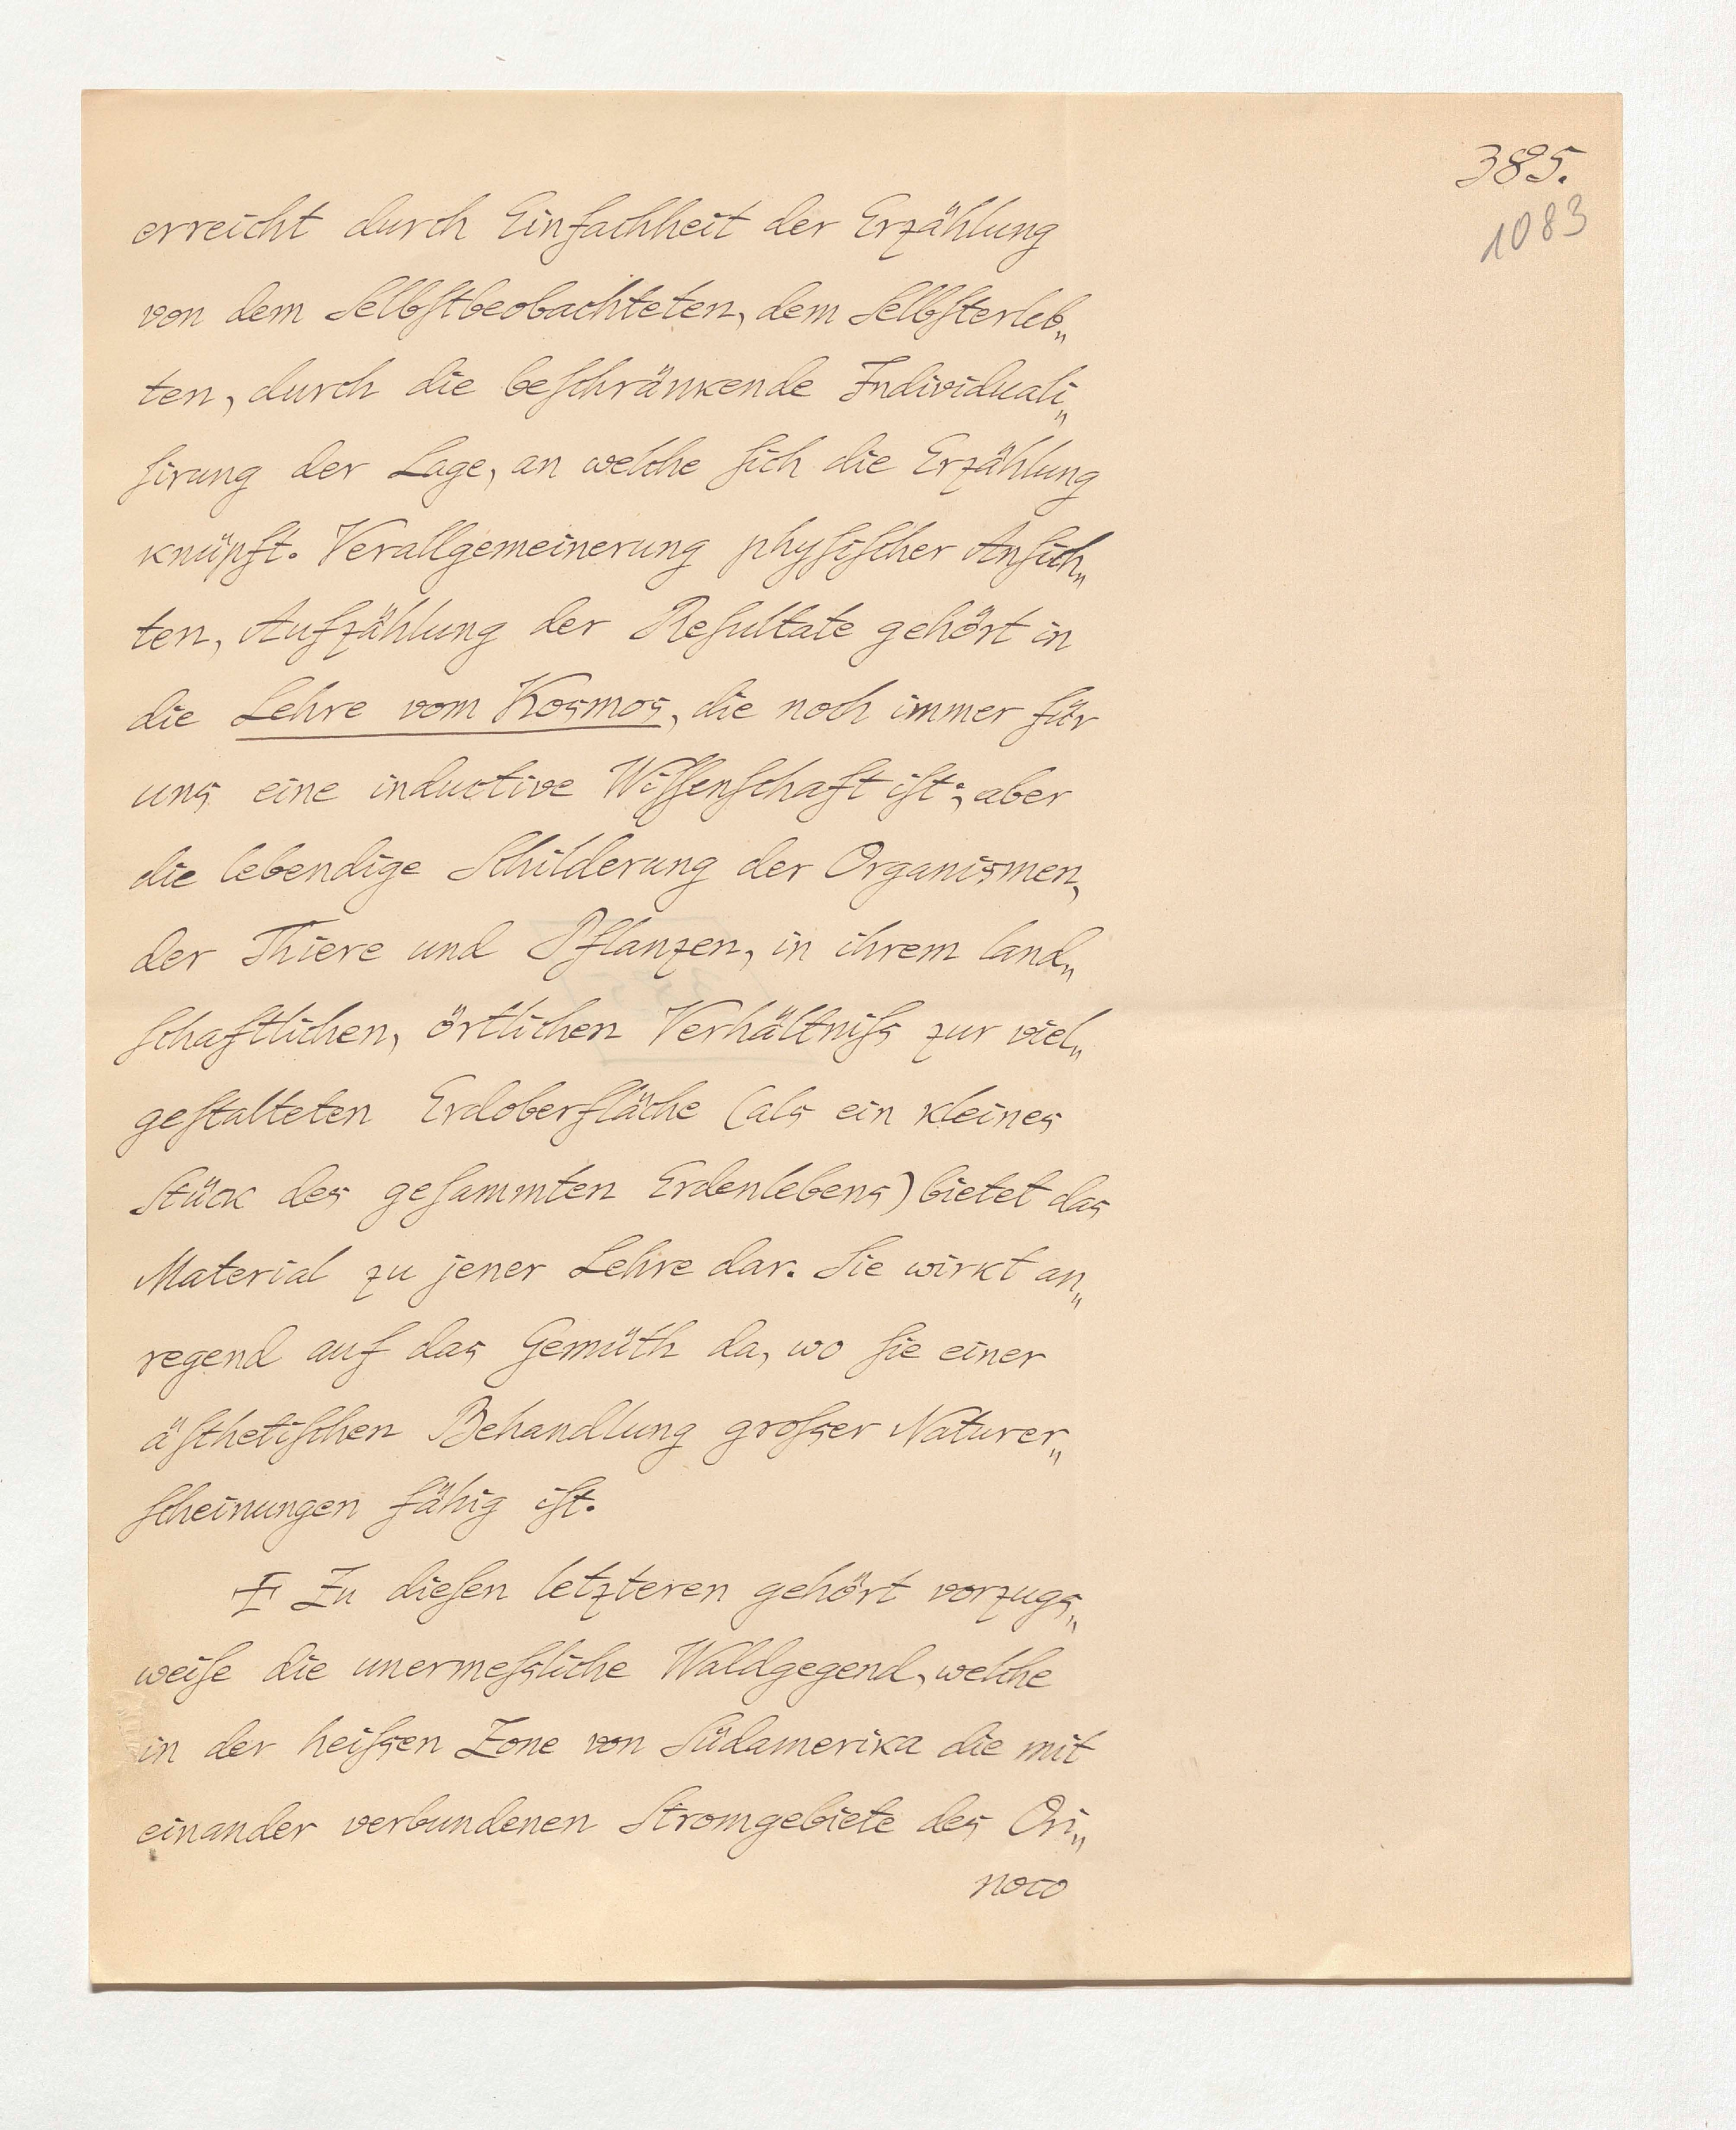 385.
1083
erreicht durch Einfachheit der Erzählung
von dem Selbſtbeobachteten, dem Selbſterleb„
ten, durch die beſchränkende Individuali„
ſirung der Lage, an welche ſich die Erzählung
knüpft. Verallgemeinerung phyſiſcher Anſich„
ten, Aufzählung der Reſultate gehört in
die Lehre vom Kosmos, die noch immer für
uns eine inductive Wiſſenſchaft iſt; aber
die lebendige Schilderung der Organismen,
der Thiere und Pflanzen, in ihrem land„
ſchaftlichen, örtlichen Verhältniſs zur viel„
geſtalteten Erdoberfläche (als ein kleines
Stück des geſammten Erdenlebens) bietet das
Material zu jener Lehre dar. Sie wirkt an„
regend auf das Gemüth da, wo ſie einer
äſthetiſchen Behandlung groſser Naturer„
ſcheinungen fähig iſt.
Zu dieſen letzteren gehört vorzugs„
weiſe die unermeſsliche Waldgegend, welche
in der heiſsen Zone von Südamerika die mit
einander verbundenen Stromgebiete des Ori„
noco